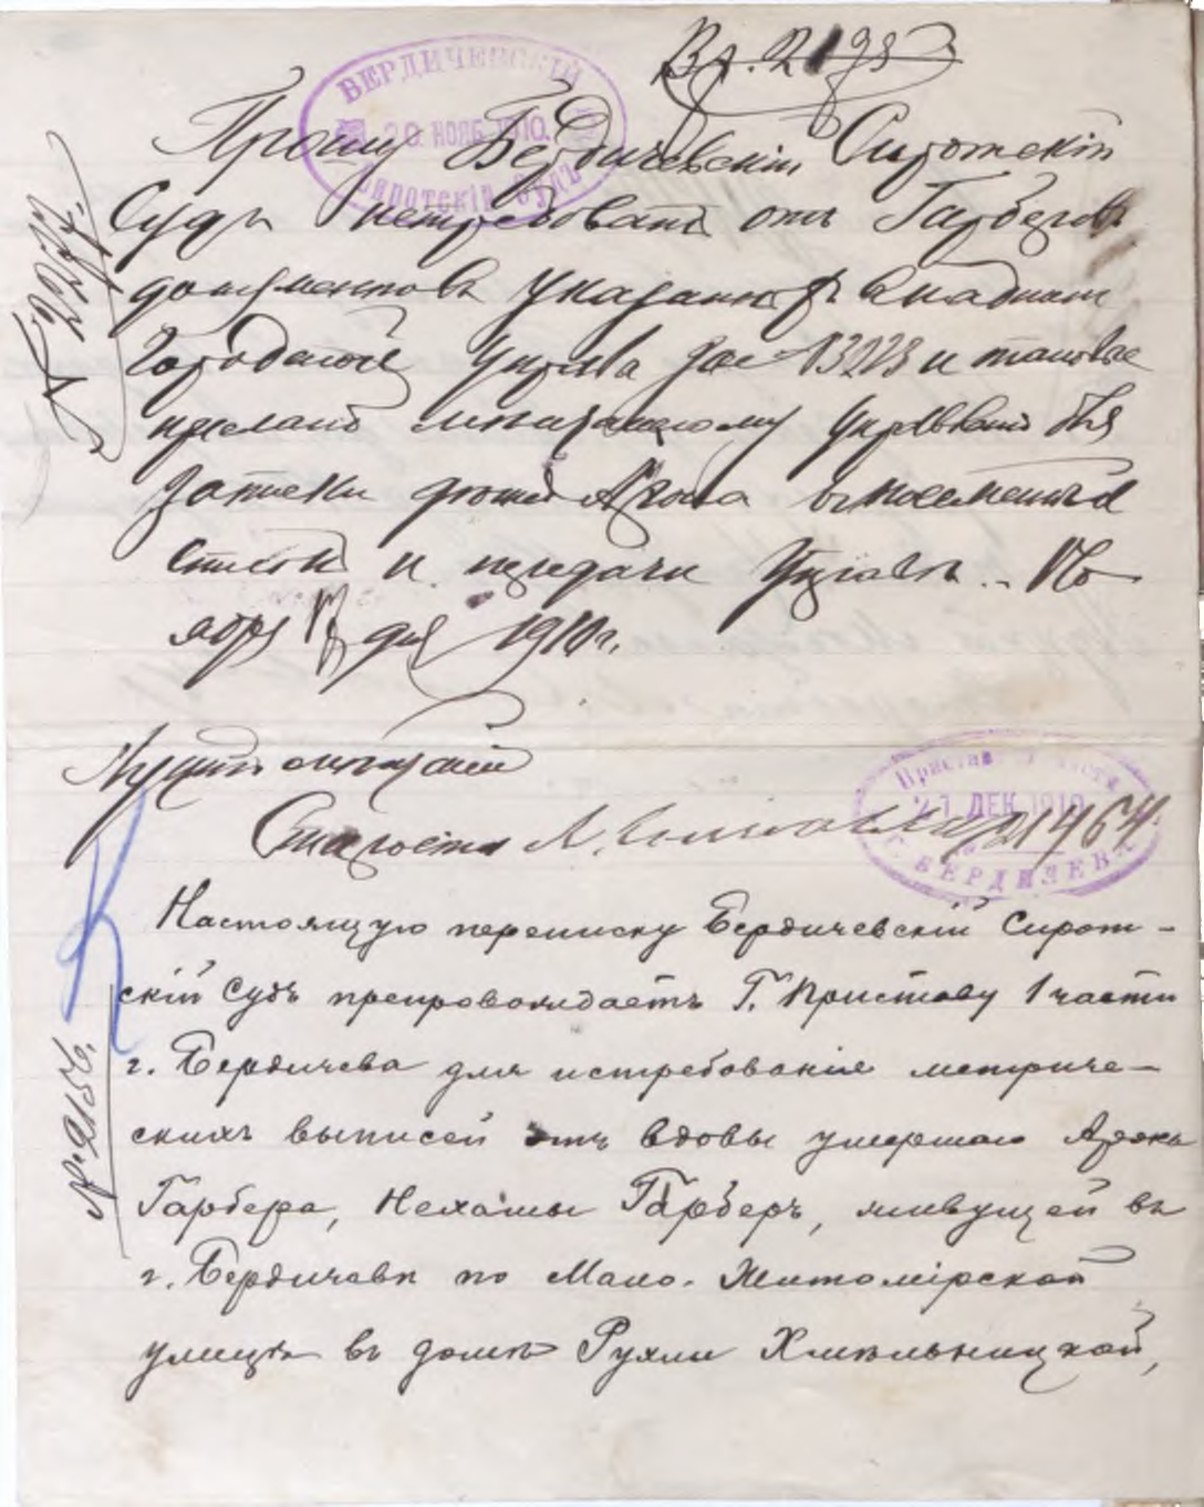 Вх. 2193
БЕРДИЧЕВСКІЙ
20. НОЯБ. 1910.
СИРОТСКІЙ СУДЪ
Прошу Бердичевскій Сиротскій
Судъ истребовать отъ Гарберовъ
документовъ указаны въ
Городской Управа за № 13223 и таковые
прислать мѣщанскому Управленію для
записки дѣтей Арона въ посемейный
списокъ и передачи Управѣ. Но
ября дня 1910 г.
№ 227
мѣщанскій
Староста
Приставъ 1 части
21 ДЕК 1910
21464
Г. БЕРДИЧЕВА
Настоящую переписку Бердичевскій Сирот-
скій Судъ препровождаетъ Г. Приставу 1 части
г. Бердичева для истребованія метриче-
скихъ выписей отъ вдовы умершаго Арона
Гарбера, Нехамы Гарберъ, живущей въ
г. Бердичевѣ по Мало-Житомірской
улицѣ въ домѣ Рухли Хмѣльницкой,
№ 2156.